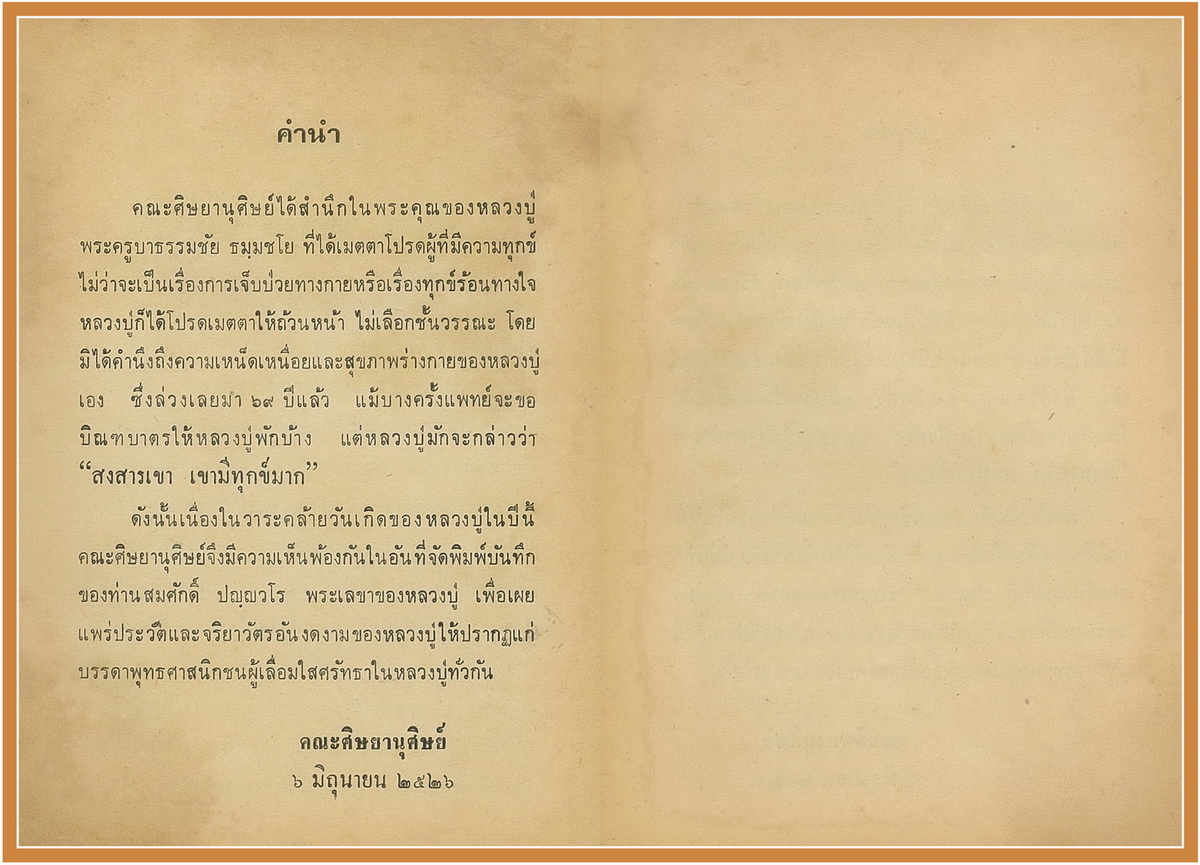 คำนำ
คณะศิษยานุศิษย์ได้สำนึกในพระคุณของหลวงปู่
พระครูบาธรรมชัย ธมฺมชโย ที่ได้เมตตาโปรดผู้ที่มีความทุกข์
ไม่ว่าจะเป็นเรื่องการเจ็บป่วยทางกายหรือเรื่องทุกข์ร้อนทางใจ
หลวงปู่ก็ได้โปรดเมตตาให้ถ้วนหน้า ไม่เลือกชั้นวรรณะ โดย
มิได้คำนึงถึงความเหน็ดเหนื่อยและสุขภาพร่างกายของหลวงปู่
เอง ซึ่งล่วงเลยมา ๖๙ ปีแล้ว แม้บางครั้งแพทย์จะขอ
บิณฑบาตรให้หลวงปู่พักบ้าง แต่หลวงปู่มักจะกล่าวว่า
“สงสารเขา เขามีทุกข์มาก”
ดังนั้นเนื่องในวาระคล้ายวันเกิดของหลวงปู่ในปีนี้
คณะศิษยานุศิษย์จึงมีความเห็นพ้องกันในอันที่จัดพิมพ์บันทึก
ของท่านสมศักดิ์ ปญฺญวโร พระเลขาของหลวงปู่ เพื่อเผย
แพร่ประวัติและจริยาวัตรอันงดงามของหลวงปู่ให้ปรากฏแก่
บรรดาพุทธศาสนิกชนผู้เลื่อมใสศรัทธาในหลวงปู่ทั่วกัน
คณะศิษยานุศิษย์
๖ มิถุนายน ๒๕๒๖